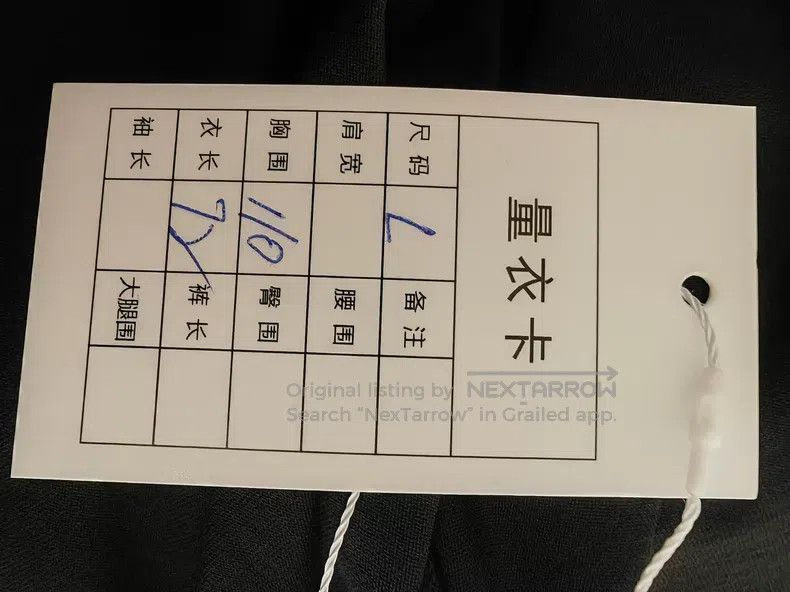 量衣卡
尺码 L 备注
肩宽 腰围
胸围 110 臀围
衣长 72 裤长
袖长 大腿围
Original listing by NEXTARROW
Search "NexTarrow" in Grailed app.